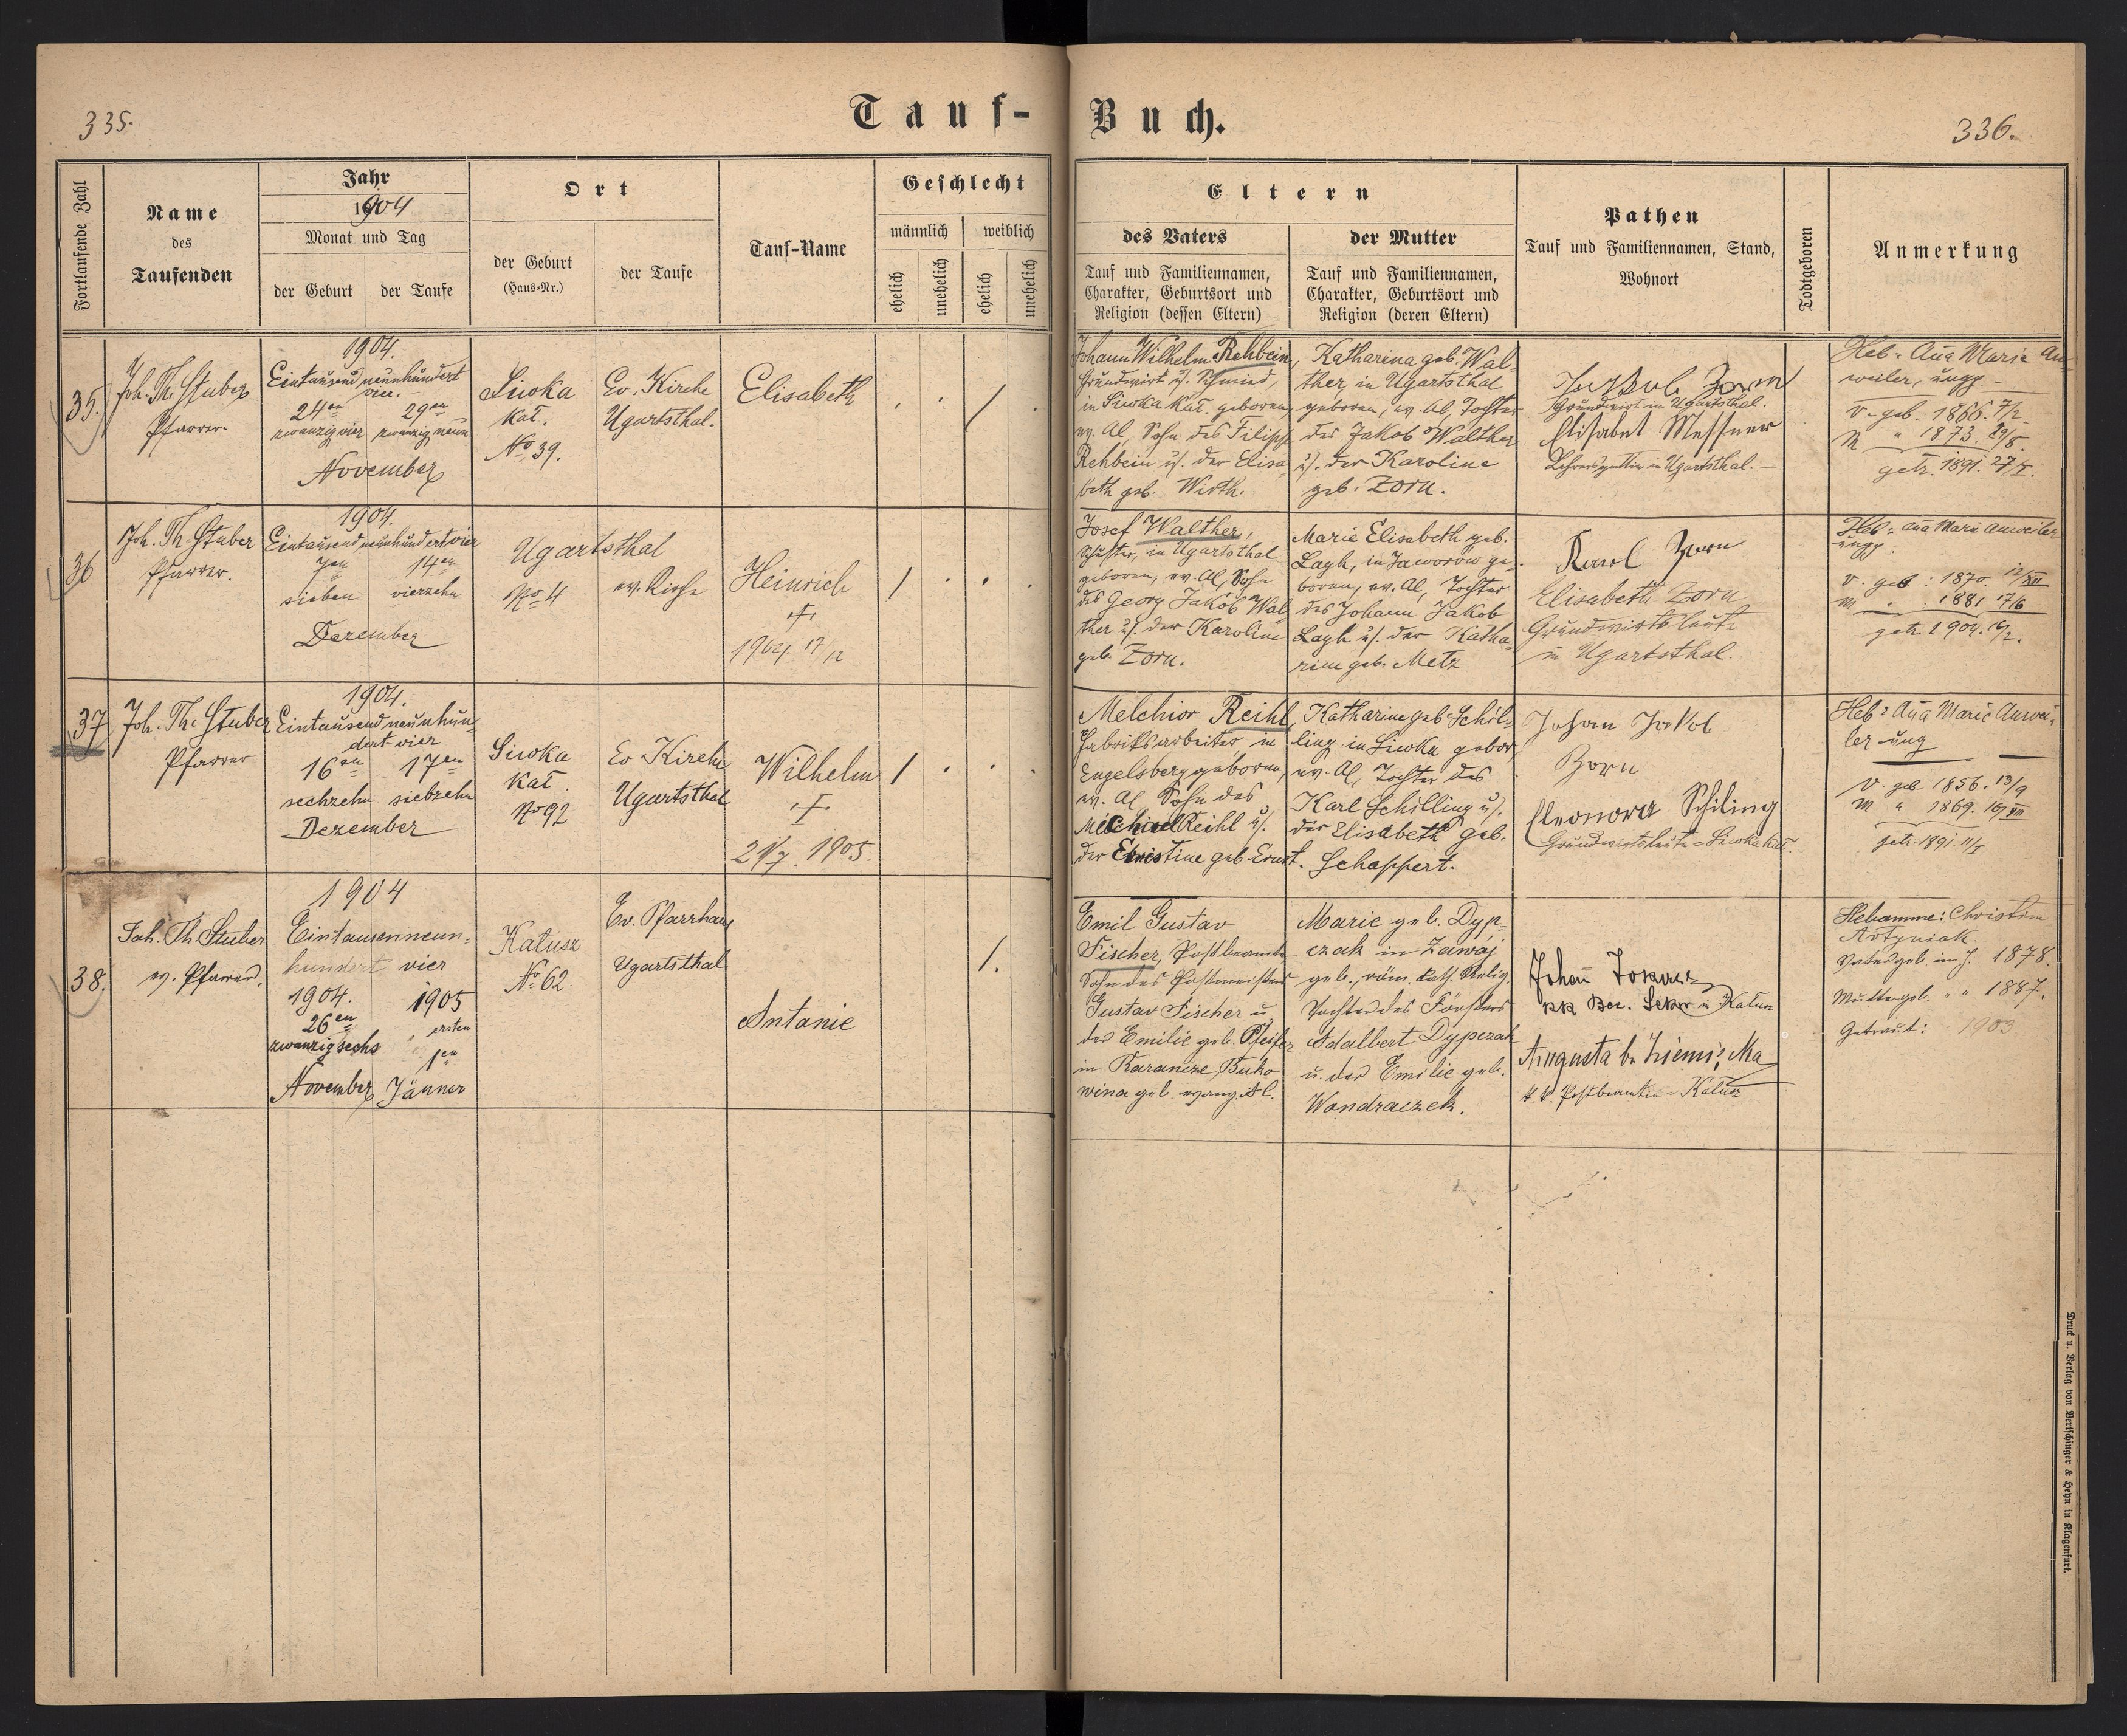 335.
Tauf-
Buch.
336.
Fortlaufende Zahl
Name
des
Taufenden
Jahr
1904
Monat und Tag
der Geburt
der Taufe
Ort
der Geburt
(Haus-Nr.)
der Taufe
Tauf-Name
Geschlecht
männlich
weiblich
ehelich
unehelich
ehelich
unehelich
Eltern
des Vaters
Tauf und Familiennamen,
Charakter, Geburtsort und
Religion (dessen Eltern)
der Mutter
Tauf und Familiennamen,
Charakter, Geburtsort und
Religion (deren Eltern)
Pathen
Tauf und Familiennamen, Stand,
Wohnort
Todtgeboren
Anmerkung
35.
Joh. Th. Stuber
Pfarrer.
1904.
Eintausend neunhundert
vier.
24en 29en
zwanzigvier zwanzig neun
November
Siwka
Kal.
No 39.
Ev. Kirche
Ugartsthal.
Elisabeth
. . / .
Johann Wilhelm Rehbein,
Grundwirt u. Schmied,
in Siwka Kal. geboren,
ev. Al, Sohn des Filipp
Rehbein u. der Elisa-
beth geb. Wirth.
Katharina geb. Wal-
ther in Ugartsthal
geboren, ev. Al, Tochter
des Jakob Walther
u. der Karoline
geb. Zorn.
Jakob Zorn
Grundwirt in Ugartsthal.
Elisabet Messner
Lehrersgattin in Ugartsthal.
Heb = Anna Marie An-
weiler, ungp
V. geb. 1866. 7/2
M " 1873. 29/8
getr. 1891. 27/I.
36
Joh. Th. Stuber
Pfarrer.
1904.
Eintausend neunhundertvier
7en 14en
sieben vierzehn
Dezember
Ugartsthal
No 4
ev. Kirche
Heinrich
+
1904 17/12
/ . . .
Josef Walther,
Schuster, in Ugartsthal
geboren, ev. Al, Sohn
des Georg Jakob Wal-
ther u. der Karoline
geb. Zorn.
Marie Elisabeth geb.
Lagh, in Jaworow ge-
boren, ev. Al, Tochter
des Johann Jakob
Lagh u. der Katha-
rine geb. Metz
Karl Zorn
Elisabeth Zorn
Grundwirtsleute
in Ugartsthal.
Heb = Anna Marie Anweiler
ungp.
V. geb : 1870. 12/XII
M " : 1881 17/6
getr. 1904. 16/2.
37
Joh. Th. Stuber
Pfarrer
1904.
Eintausend neunhun-
dert vier
16en 17en
sechzehn siebzehn
Dezember
Siwka
Kal.
No 92
Ev Kirche
Ugartsthal
Wilhelm
+
21/7. 1905.
/ . . .
Melchior Reihl,
Fabriksarbeiter, in
Engelsberg geboren,
ev. Al Sohn des
Michael Reihl u.
der Christine geb. Ernst.
Katharine geb. Schil-
ling in Siwka gebor,
ev. Al, Tochter des
Karl Schilling u.
der Elisabeth geb.
Schappert.
Johan Jakob
Born
Eleonora Schiling
Grundwirtsleute = Siwka kal.
Heb = Anna Marie Anwei-
ler ung
V geb 1856. 13/9
M " 1869. 16/VII
getr. 1891. 11/I
38.
Joh. Th. Stuber
ev. Pfarrer.
1904
Eintausenneun-
hundert vier
1904. 1905
26en ersten
zwanzigsechs 1en
November Jänner
Kalusz
No 62.
Ev. Pfarrhaus
Ugartsthal
Antanie
/.
Emil Gustav
Fischer, Postbeamte
Sohn des Postmeisters
Gustav Fischer u
der Emilie geb. Pfeifer
in Karancze, Buko
wina geb. evang. Al.
Marie geb. Dyp-
czak in Zawoj
geb., röm. kath. Relig.
Tochter des Försters
Adalbert Dypczak
u. der Emilie geb.
Wondraczek.
Johann
kk Bez. Sekr in Kalusz
Augusta
k. k. Postbeamtin Kalusz
Hebamme: Christine
Artyniak.
Vater geb. im J. 1878.
Mutter geb. " " 1887.
Getraut: 1903
Druck u. Verlag von Bertschinger & Heyn in Klagenfurt.